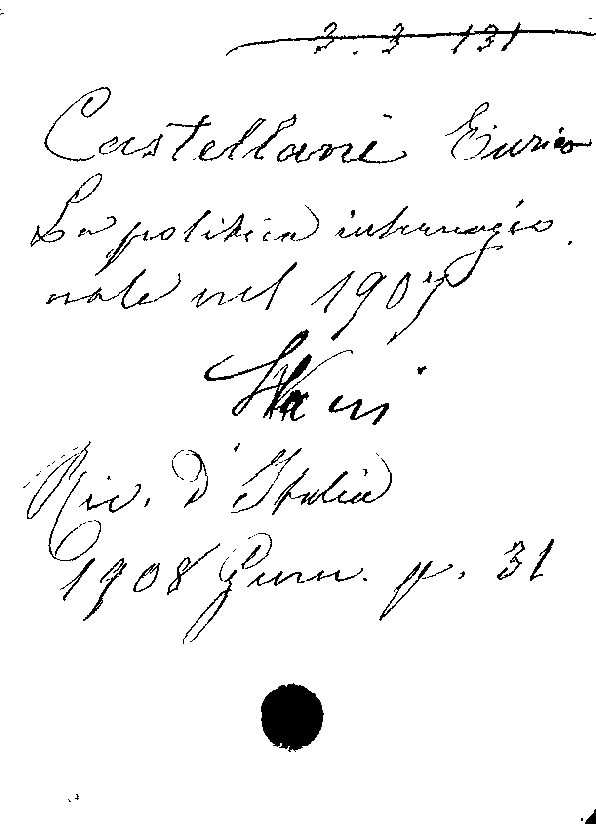 3. 3 131
Castellani Enrico
La politica internazio
nale nel 1907
Riv. d'Italia
1908 Genn. p. 31